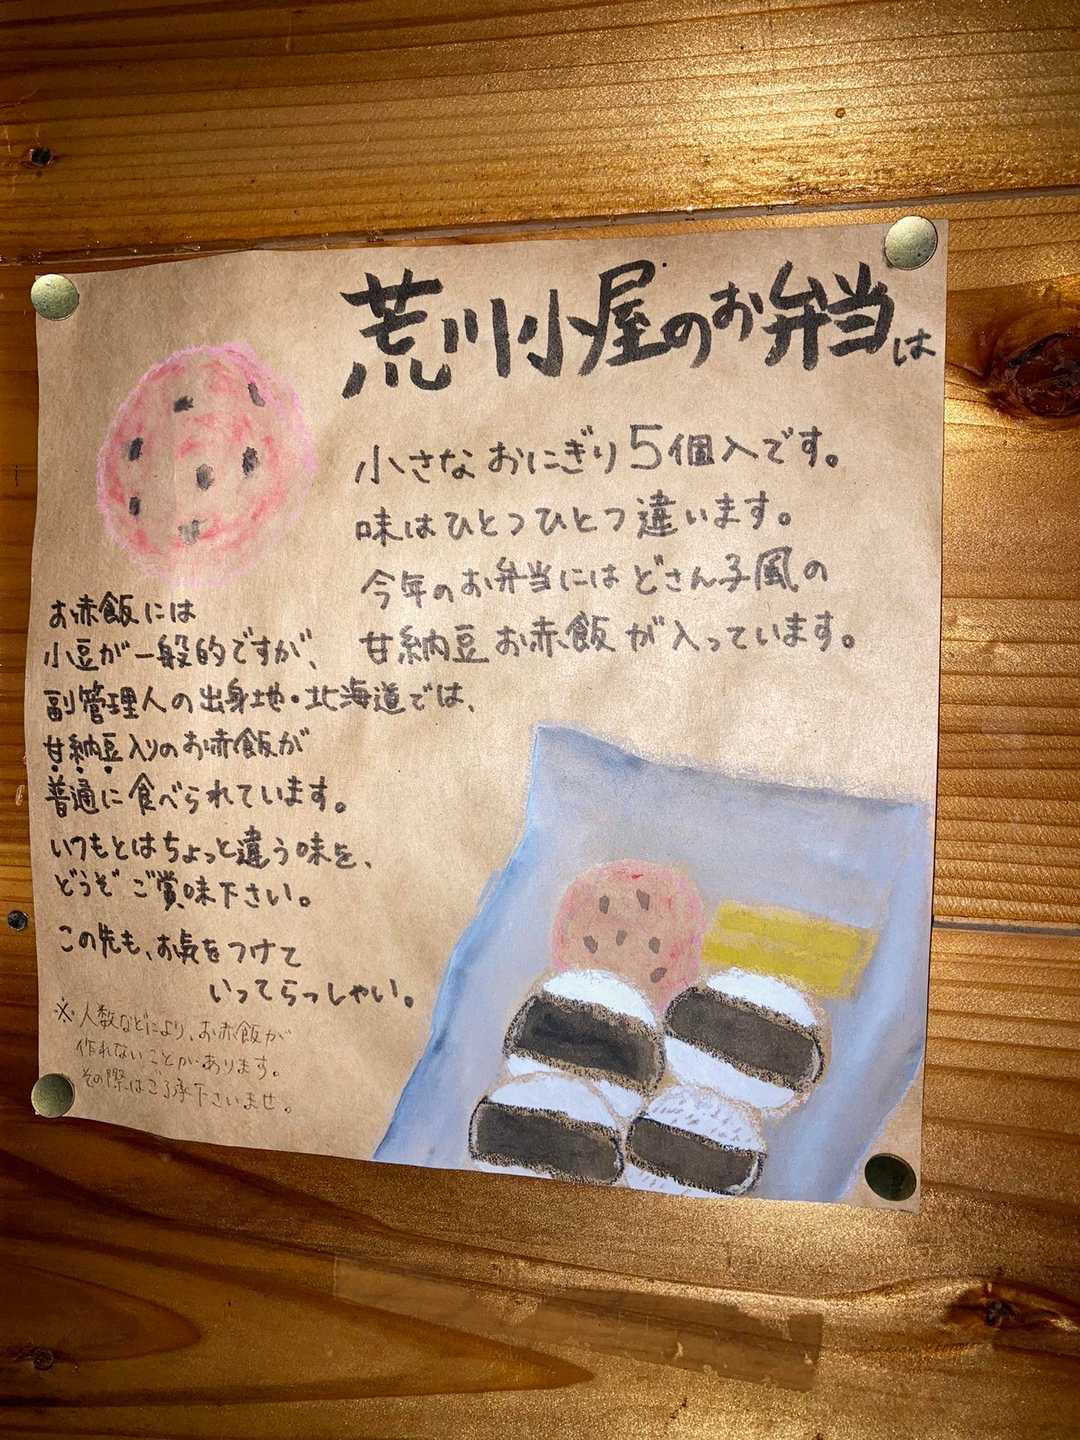 荒川小屋のお弁当は
小さなおにぎり5個入です。
味はひとつひとつ違います。
今年のお弁当にはどさん子風の
甘納豆お赤飯が入っています。
お赤飯には
小豆が一般的ですが、
副管理人の出身地・北海道では、
甘納豆入りのお赤飯が
普通に食べられています。
いつもとはちょっと違う味を、
どうぞご賞味下さい。
この先も、お気をつけて
いってらっしゃい。
※人数などにより、お赤飯が
作れないことがあります。
その際はご了承下さいませ。